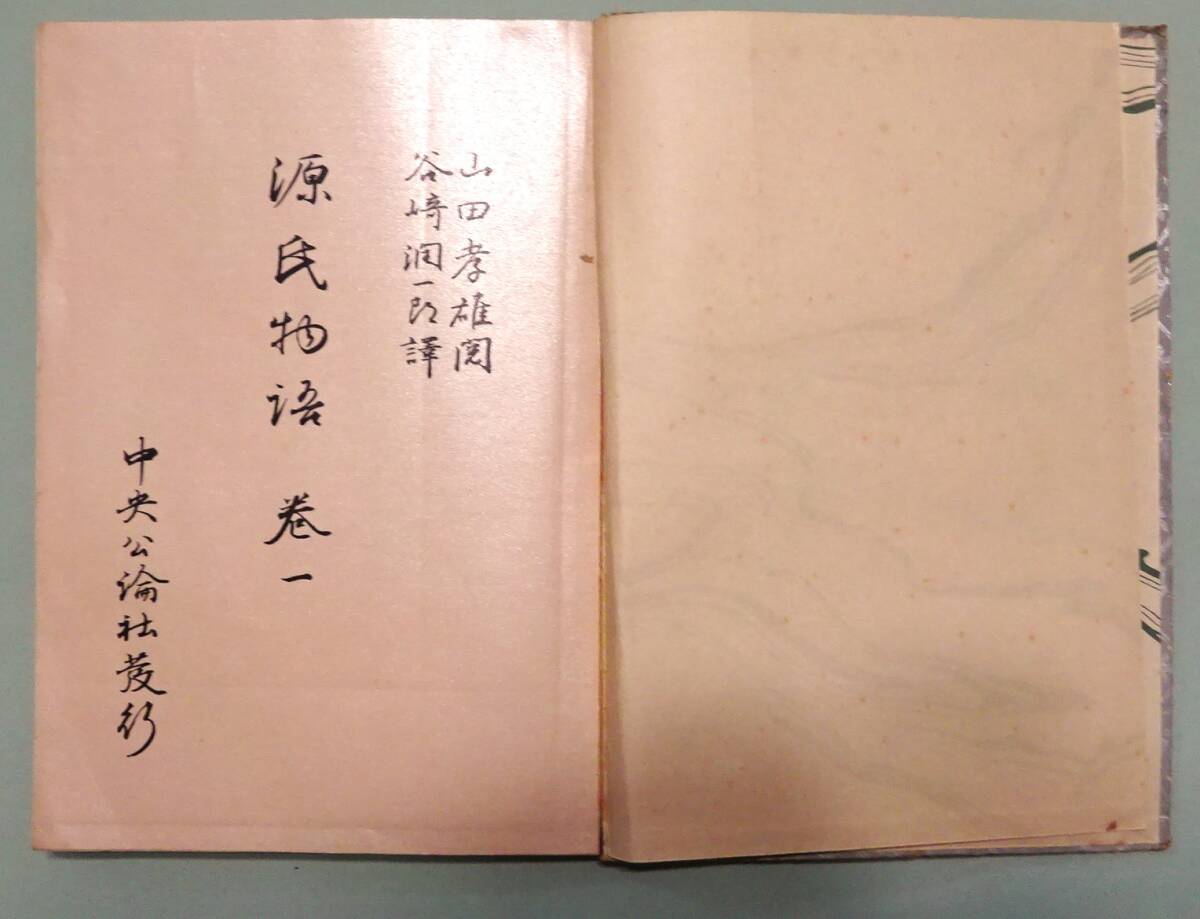 山田孝雄閲
谷崎潤一郎譯
源氏物語 卷一
中央公論社發行